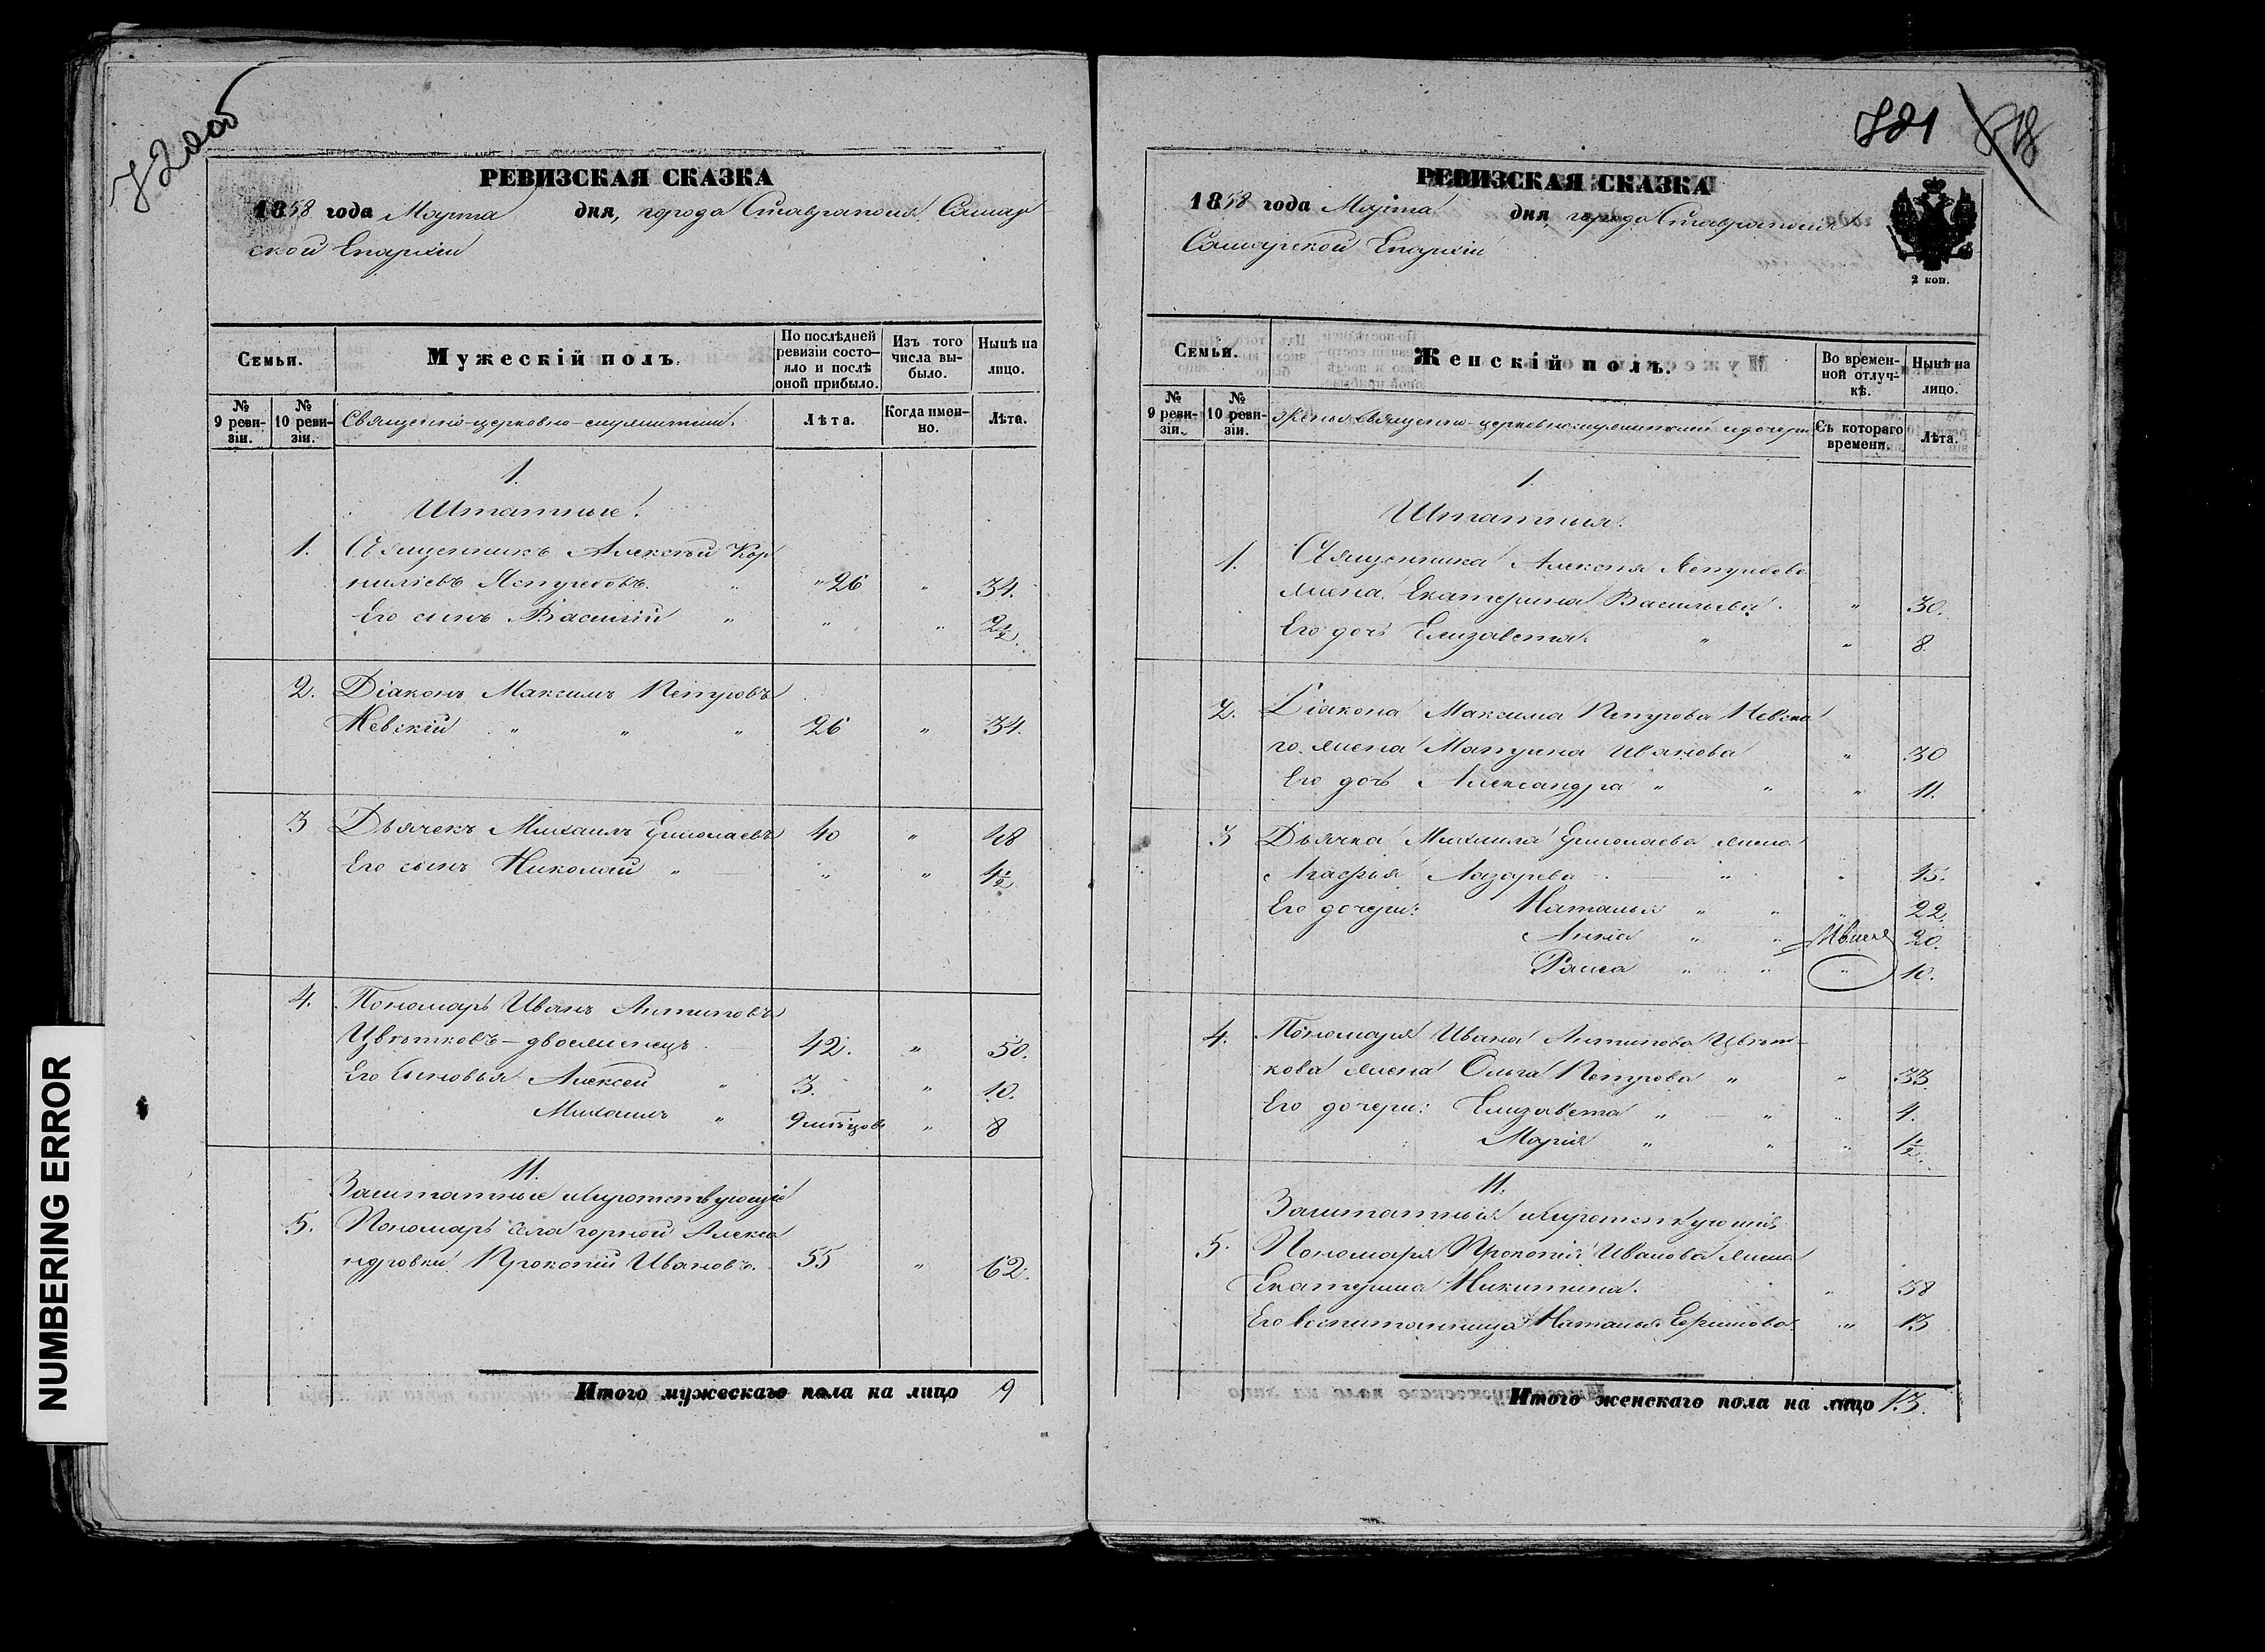 720 об
РЕВИЗСКАЯ СКАЗКА
1858 года Марта дня, города Ставрополя Самар
ской Епархіи
Семьи.
Мужескій полъ.
По послѣдней ревизіи состо-
яло и послѣ оной прибыло.
Изъ того числа вы-
было.
Нынѣ на лицо.
№ 9 реви-
зіи.
№ 10 реви-
зіи.
Священно-церковно-служители.
Лѣта.
Когда имен-
но.
Лѣта.
1.
Штатные.
1. Священникъ Алексѣй Кор
ниліевъ " "26 " 34.
Его сынъ Василій " " " 2½.
2. Діаконъ Максимъ Петровъ
Невскій " " " 26 " 34.
3 Дьячекъ Михаилъ Ермолаевъ 40 " 48
Его сынъ Николай " " " 4½
4. Пономарь Иванъ Антиповъ
Цвѣтковъ-двоеженецъ 42. " 50.
Его сыновья Алексей " 3. " 10.
Михаилъ " 9 мѣсяцовъ " 8
11.
Заштатные и сиротствующіе
5. Пономарь села горной Алекса
ндровки Прокопій Ивановъ. 55 " 62.
Итого мужескаго пола на лицо 9
721
РЕВИЗСКАЯ СКАЗКА
1858 года Марта дня, города Ставрополя
Самарской Епархіи
2 коп.
Семьи.
Женскій полъ.
Во времен-
ной отлуч-
кѣ.
Нынѣ на лицо.
№ 9 реви-
зіи.
№ 10 реви-
зіи.
Жены священно-церковно-служителей и дочери
Съ котораго времени.
Лѣта.
1.
Штатныя.
1. Священника Алексѣя
жена Екатерина Васильева. " 30.
Его дочь Елизавета. " " 8
2. Діакона Максима Петрова Невска
го. жена Матрена Иванова " 30
Его дочь Александра " " " 11.
3 Дьячка Михаила Ермолаева жена
Агафья Лазарева " " 45.
Его дочери: Наталья " " " 22.
Анна " " 20.
Раиса " " " 10.
4. Пономаря Ивана Антипова Цвѣт-
кова жена Ольга Петрова " " 33.
Его дочери: Елизавета " " " 4.
Марія " " " 1½.
11.
Заштатныя и сиротствующія
5. Пономаря Прокопія Иванова жена
Екатерина Никитина. " 58
Его воспитанница Наталья Ефимова. " 13
Итого женскаго пола на лицо 13.
NUMBERING ERROR